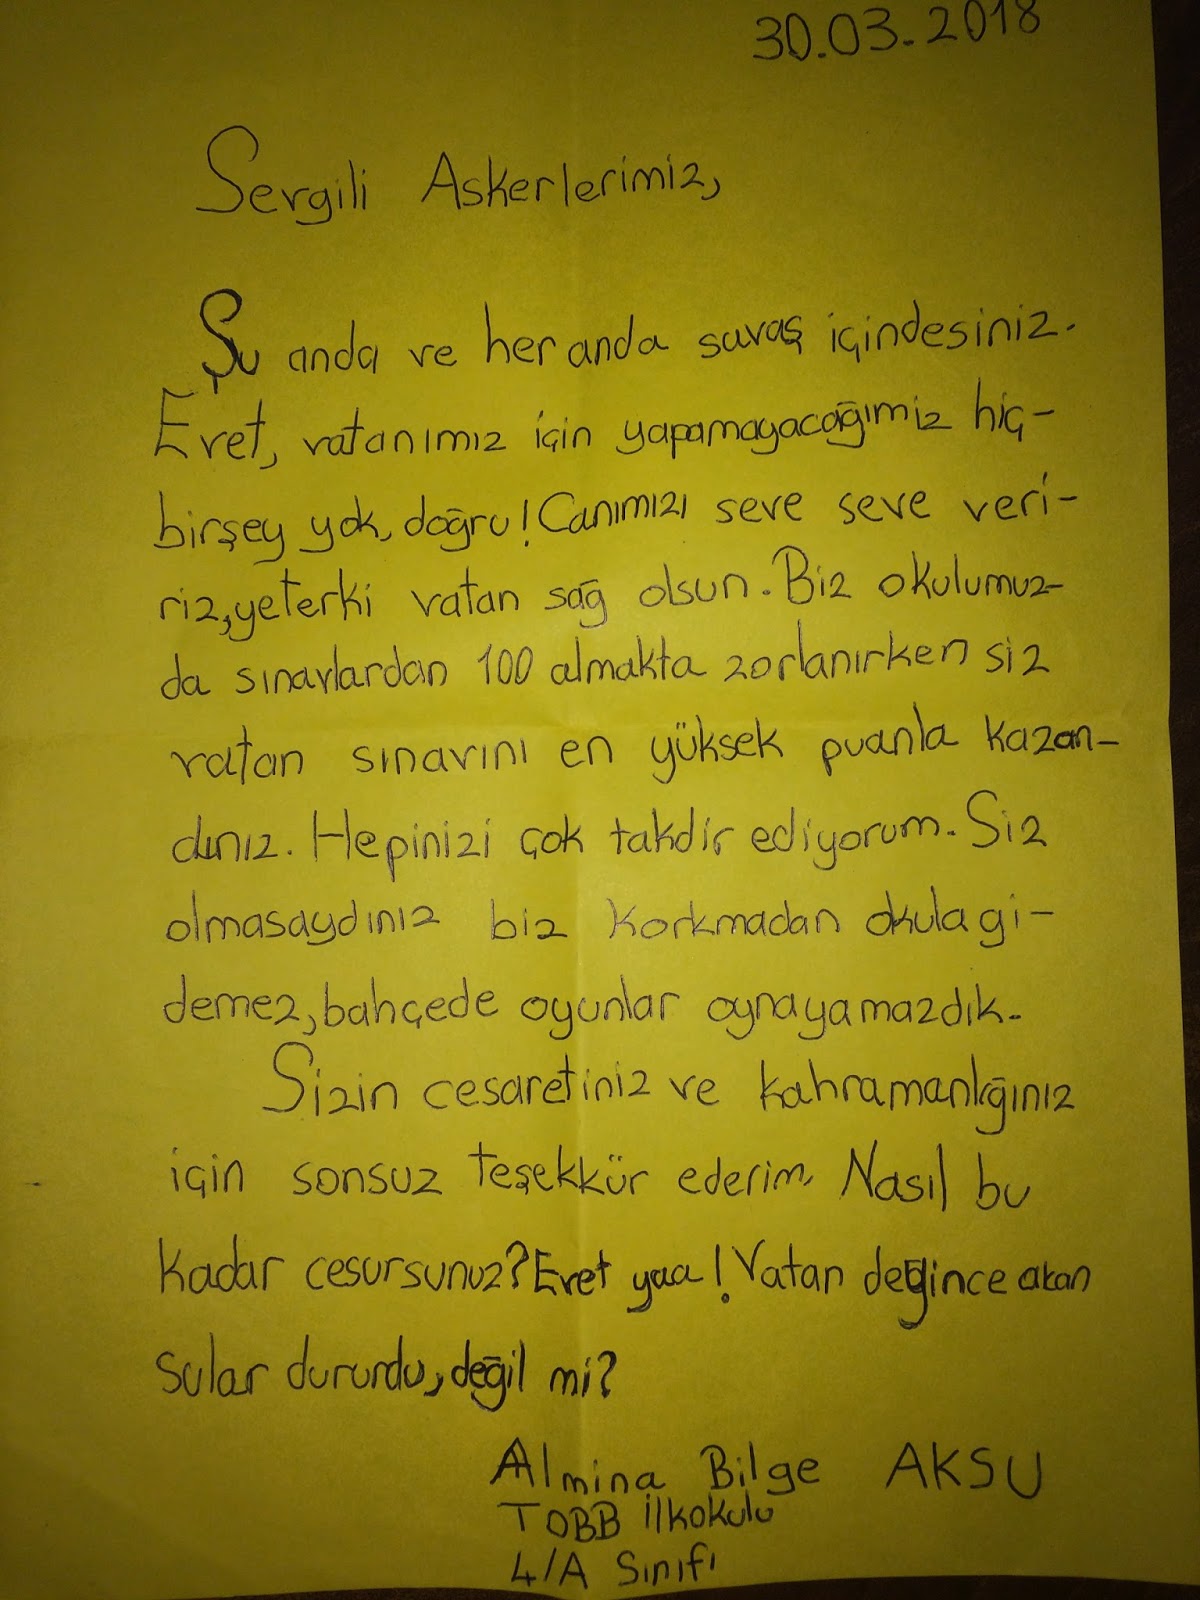 30.03.2018
Sevgili Askerlerimiz,
Şu anda ve her anda savaş içindesiniz.
Evet, vatanımız için yapamayacağımız hiç-
birşey yok, doğru! Canımızı seve seve veri-
riz,yeterki vatan sağ olsun. Biz okulumuz-
da sınavlardan 100 almakta zorlanırken siz
vatan sınavını en yüksek puanla kazan-
dınız. Hepinizi çok takdir ediyorum. Siz
olmasaydınız biz korkmadan okula gi-
demez, bahçede oyunlar oynayamazdık.
Sizin cesaretiniz ve kahramanlığınız
için sonsuz teşekkür ederim. Nasıl bu
kadar cesursunuz? Evet yaa! Vatan deyince akan
sular dururdu, değil mi?
Almina Bilge AKSU
TOBB İlkokulu
4/A Sınıfı